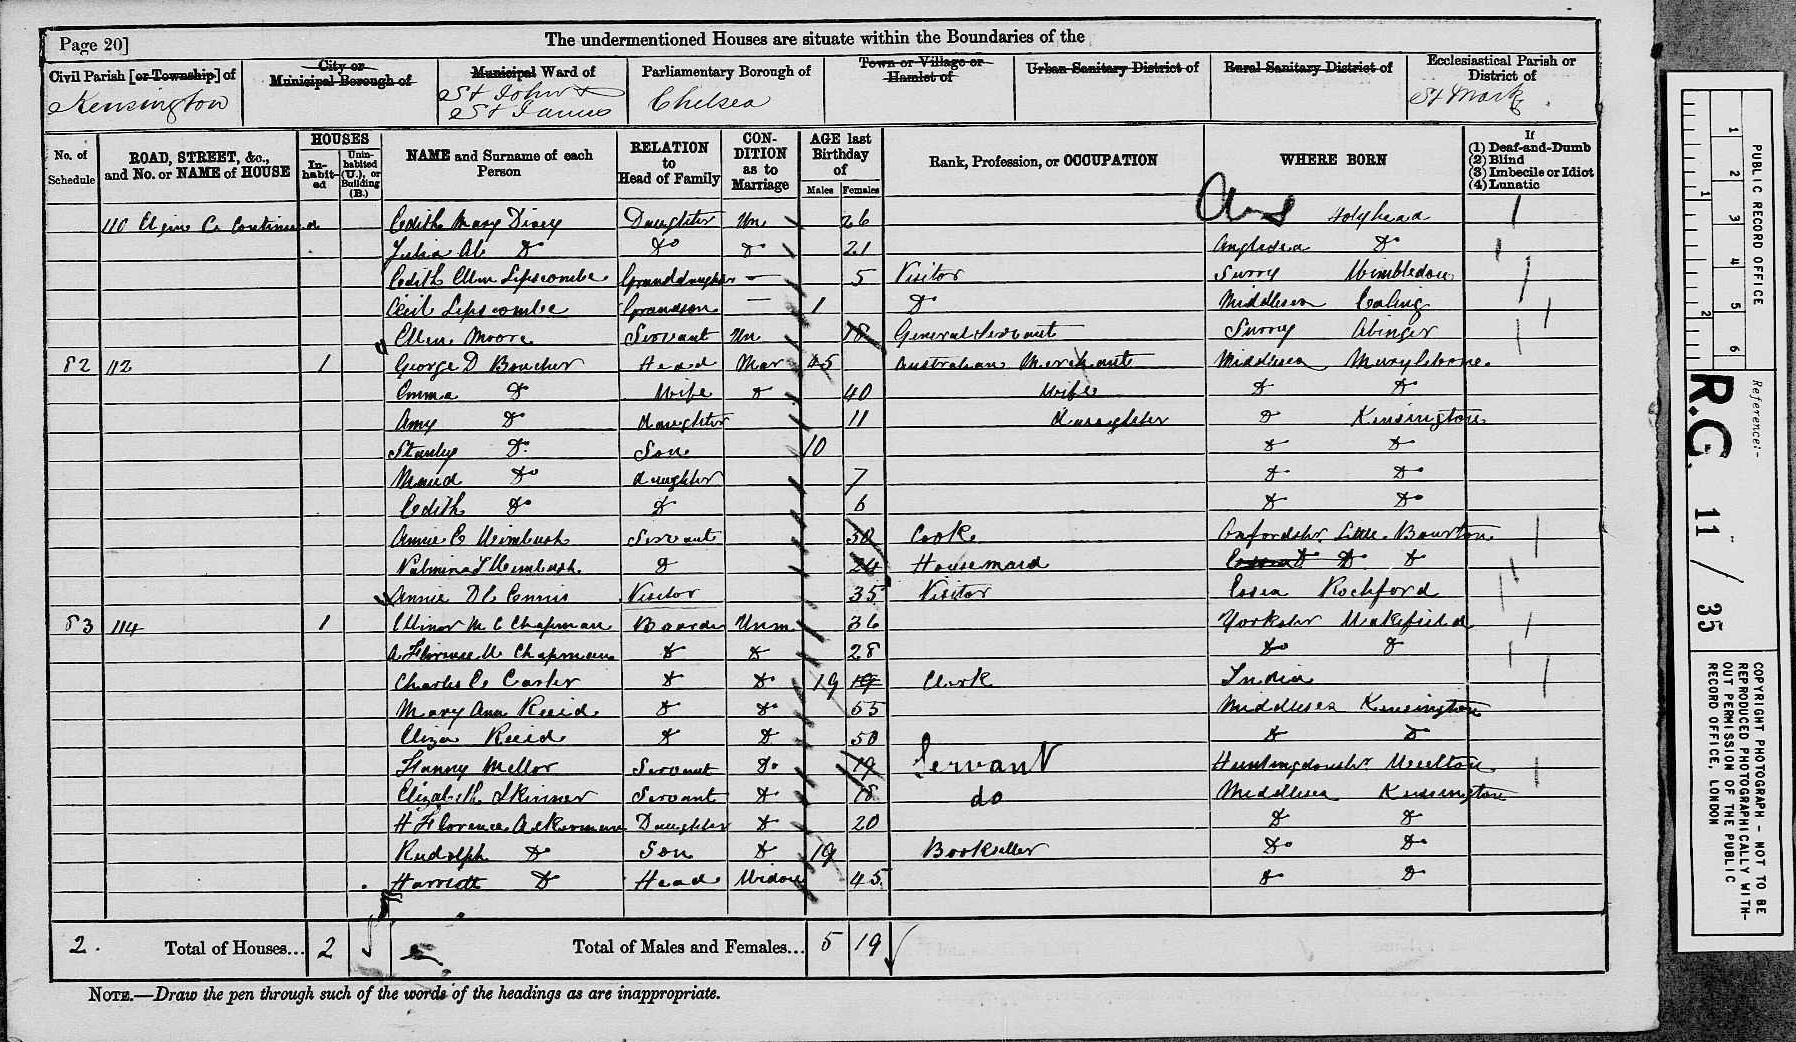 Page 20]
The undermentioned Houses are situate within the Boundaries of the
Civil Parish [or Township] of
Kensington
City or
Municipal Borough of
Municipal Ward of
St John &
St James
Parliamentary Borough of
Chelsea
Town or Village or
Hamlet of
Urban Sanitary District of
Rural Sanitary District of
Ecclesiastical Parish or
District of
St Mark
No. of
Schedule
ROAD, STREET, &c.,
and No. or NAME of HOUSE
HOUSES
In-
habit-
ed
Unin-
habited
(U.), or
Building
(B.)
NAME and Surname of each
Person
RELATION
to
Head of Family
CON-
DITION
as to
Marriage
AGE last
Birthday
of
Males
Females
Rank, Profession, or OCCUPATION
WHERE BORN
If
(1) Deaf-and-Dumb
(2) Blind
(3) Imbecile or Idiot
(4) Lunatic
110 Elgin C. Continued Edith Mary Daughter Un 26 Holyhead
Julia Do Do 21 Anglesea Do
Edith Ellen Lipscombe Granddaughter — 5 Visitor Surry Wimbledon
Cecil Lipscombe Grandson — 1 Do Middlesex Ealing
Ellen Moore Servant Un 18 General Servant Surrey Abinger
82 112 1 George D Boucher Head Mar 45 Australian Merchant Middlesex Marylebone
Emma Do Wife Do 40 Wife Do Do
Amy Do daughter 11 daughter Do Kensington
Stanley Do Son 10 Do Do
Maud Do daughter 7 Do Do
Edith Do Do 6 Do Do
Annie E Wimbush Servant 30 Cook Oxfordshr. Little Bourton
Wimbush Do 24 Housemaid Do Do
Annie Ennis Visitor 35 Visitor Essex Rochford
83 114 1 Ellinor M C Chapman Boarder Unm 36 Yorkshr Wakefield
A Florence Chapman Do Do 28 Do Do
Charles C Carter Do Do 19 19 Clerk India
Mary Ann Reeid Do Do 55 Middlesex Kensington
Eliza Reeid Do Do 50 Do Do
Fanny Mellor Servant Do 19 Servant Huntingdonshr
Elizabeth Skinner Servant Do 18 do Middlesex Kensington
H Florence Ackermann Daughter Do 20 Do Do
Rudolph Do Son Do 19 Bookseller Do Do
Harriott Do Head Widow 45 Do Do
2. Total of Houses... 2 Total of Males and Females... 5 19
NOTE.—Draw the pen through such of the words of the headings as are inappropriate.
PUBLIC RECORD OFFICE
1 2 3 4 5 6
1 2
Reference:-
R.G. 11 / 35
COPYRIGHT PHOTOGRAPH - NOT TO BE
REPRODUCED PHOTOGRAPHICALLY WITH-
OUT PERMISSION OF THE PUBLIC
RECORD OFFICE, LONDON